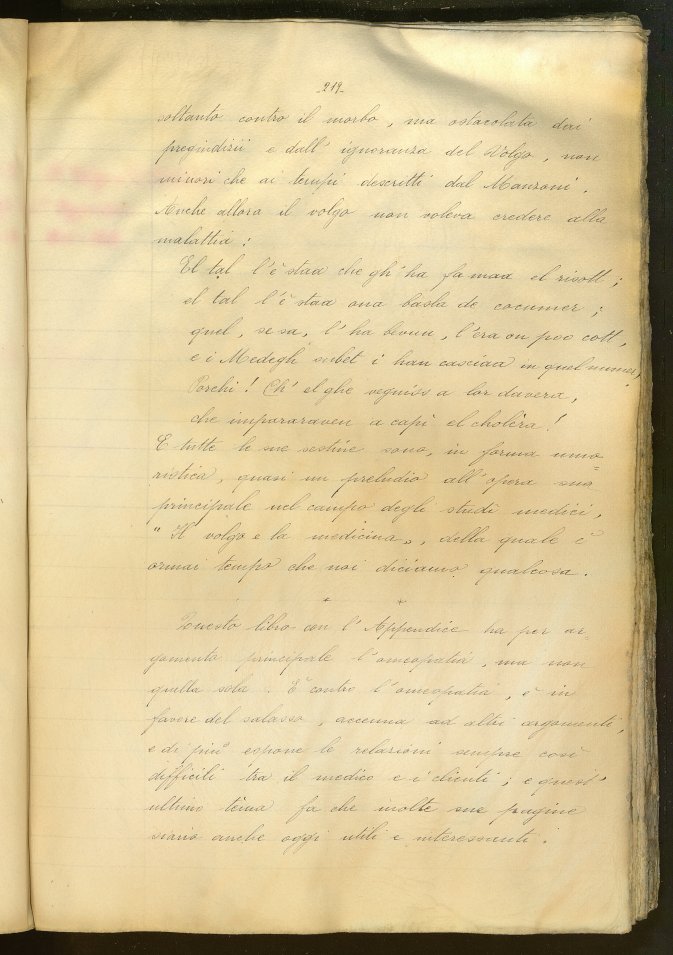 -219-
soltanto contro il morbo, ma ostacolata dai
pregiudizii e dall' ignoranza del Volgo, non
minori che ai tempi descritti dal Manzoni.
Anche allora il volgo non voleva credere alla
malattia:
El tal l'è staa che gh'ha famaa el risott;
el tal l'è staa ona basla de cocumer;
quel, se sa, l'ha bevuu, l'era on poo cott,
e i Medegh subet i han casciaa in quel numer,
Porchi! Ch'el ghe vegniss a lor davera,
che impararaven a capì el cholèra!
E tutte le sue sestine sono, in forma umo
ristica, quasi un preludio all'opera sua
principale nel campo degli studi medici,
"Il volgo e la medicina„, della quale è
ormai tempo che noi diciamo qualcosa.
* *
Questo libro con l'Appendice ha per ar-
gomento principale l'omeopatia, ma non
quella sola. È contro l'omeopatia, è in
favore del salasso, accenna ad altri argomenti,
e di più espone le relazioni sempre così
difficili tra il medico e i clienti; e quest'
ultimo tèma fa che molte sue pagine
siano anche oggi utili e interessanti.